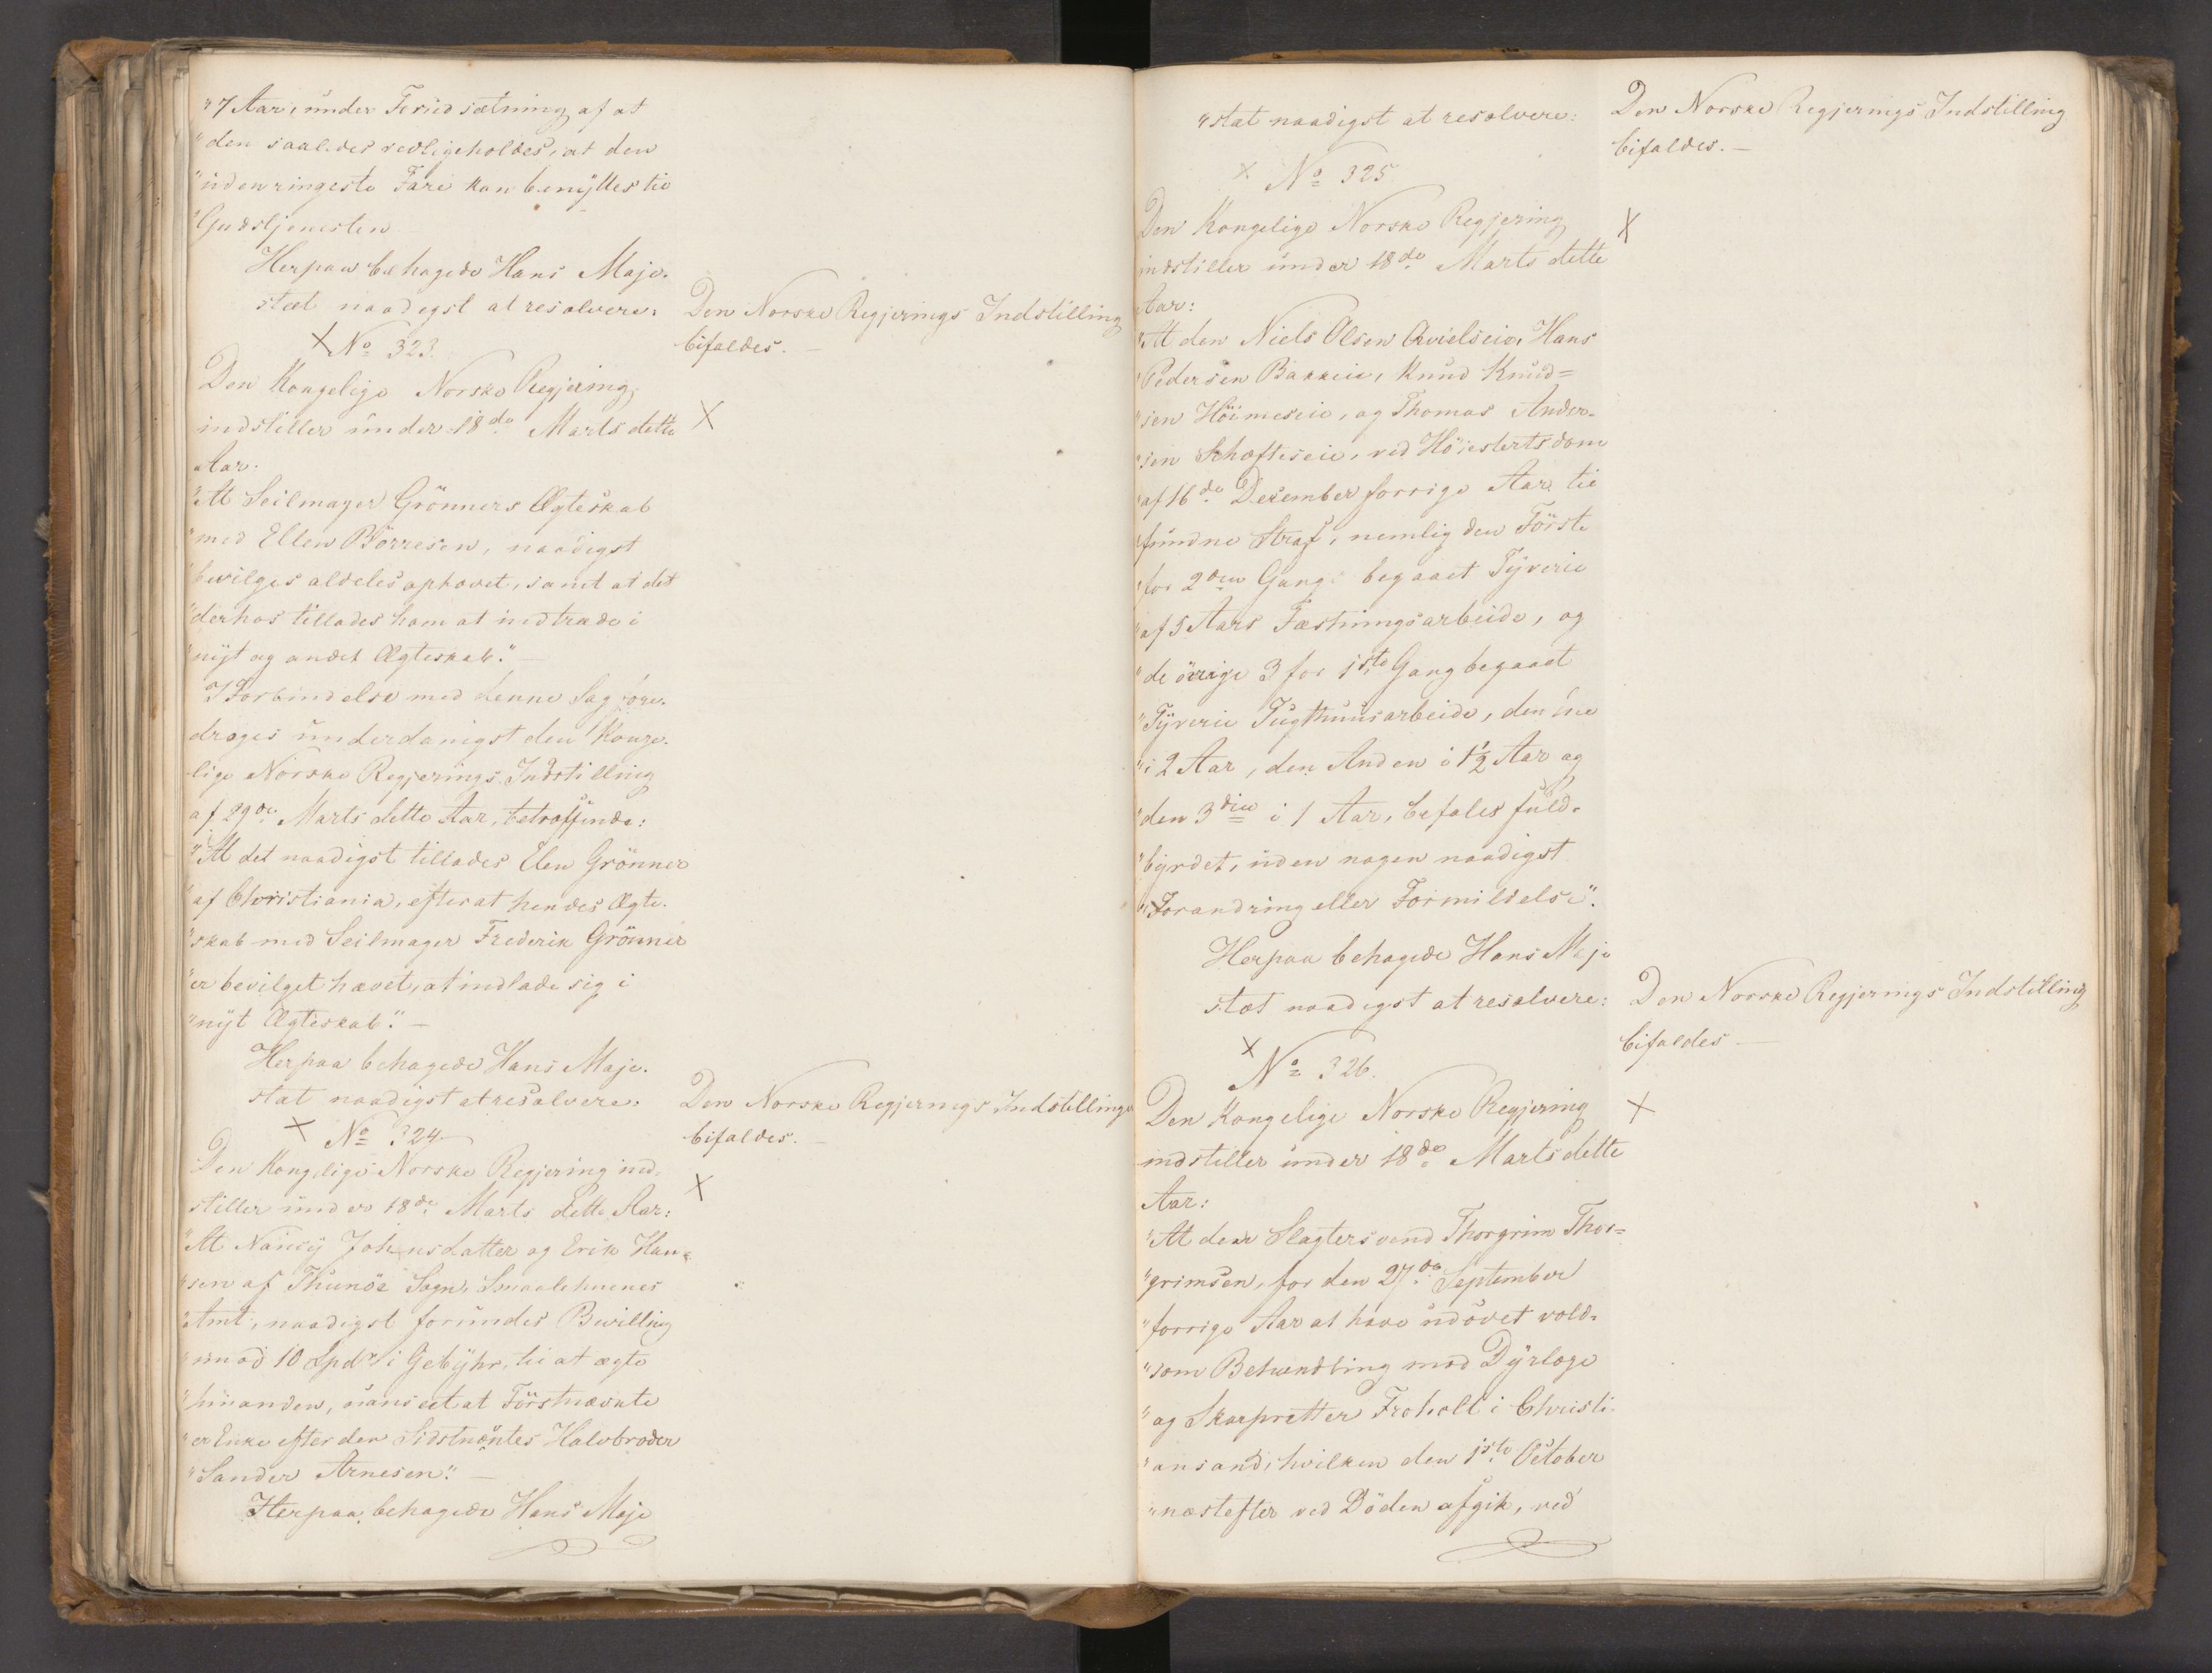 "7 Aar, under Forudsætning af at
"den saaledes vedligeholdes, at den
"uden ringeste Fare kan benyttes til
"Gudstjenesten
Herpaa behagede Hans Maje-
stæt naadigst at resolvere:
Den Norske Regjerings Indstilling
bifaldes. —
X No 323.
Den Kongelige Norske Regjering
indstiller under 18de Marts dette
X
Aar.
"At Seilmager Grönners Ægteskab
"med Ellen Börresen, naadigst
"bevilges aldeles ophævet, samt at det
"derhos tillades ham at indtræde i
"nyt og andet Ægteskab." —
I Forbindelse med denne Sag fore-
drages underdanigst den Konge-
lige Norske Regjerings Indstilling
af 29de Marts dette Aar, betræffende:
"At det naadigst tillades Elen Grönner
"af Christiania, efterat hendes Ægte-
"skab med Seilmager Frederik Grönner
"er bevilget hævet, at indlade sig i
"nyt Ægteskab." —
Herpaa behagede Hans Maje-
stæt naadigst at resolvere:
Den Norske Regjerings Indstillinger
bifaldes. —
X No 324
Den Kongelige Norske Regjering ind-
stiller under 18de Marts dette Aar:
X
"At Nancy Johnsdatter og Erik Han-
"sen af Thunöe Sogn, Smaalehnenes
"Amt, naadigst forundes Bevilling
"imod 10 Spdr i Gebyhr, til at ægte
"hinanden, uanseet at Förstnævnte
"er Enke efter den Sidstnævntes Halvbroder
"Sander Arnesen." —
Herpaa behagede Hans Maje
"stæt naadigst at resolvere:
Den Norske Regjerings Indstilling
bifaldes. —
X No 325.
Den Kongelige Norske Regjering
X
indstiller under 18de Marts dette
Aar:
"At den Niels Olsen Hans
"Pedersen Bakkeie, Knud Knud=
"sen Höimeseie, og Thomas Ander-
"sen Skofteseie, ved Höiesteretsdom
"af 16de December forrige Aar til
"fundne Straf, nemlig den Förste
"for 2den Gang begaaet Tyverie
"af 5 Aars Fæstningsarbeide, og
"de övrige 3 for 1ste Gang begaaet
"Tyverie Tugthuusarbeide, den ene
"i 2 Aar, den Anden i 1½ Aar og
"den 3die i 1 Aar, befales fuld-
"byrdet, uden nogen naadigst
"Forandring eller Formildelse".
Herpaa behagede Hans Maje
stæt naadigst at resolvere:
Den Norske Regjerings Indstilling
bifaldes —
X No 326.
Den Kongelige Norske Regjering
X
indstiller under 18de Marts dette
Aar:
"At den Slagtersvend Thorgrim Thor=
"grimsen, for den 27de September
"forrige Aar at have udövet vold-
"som Behandling mod Dyrlæge
"og Skarpretter Froholt i Christi-
"ansand, hvilken den 1ste October
"næstefter ved Döden afgik, ved